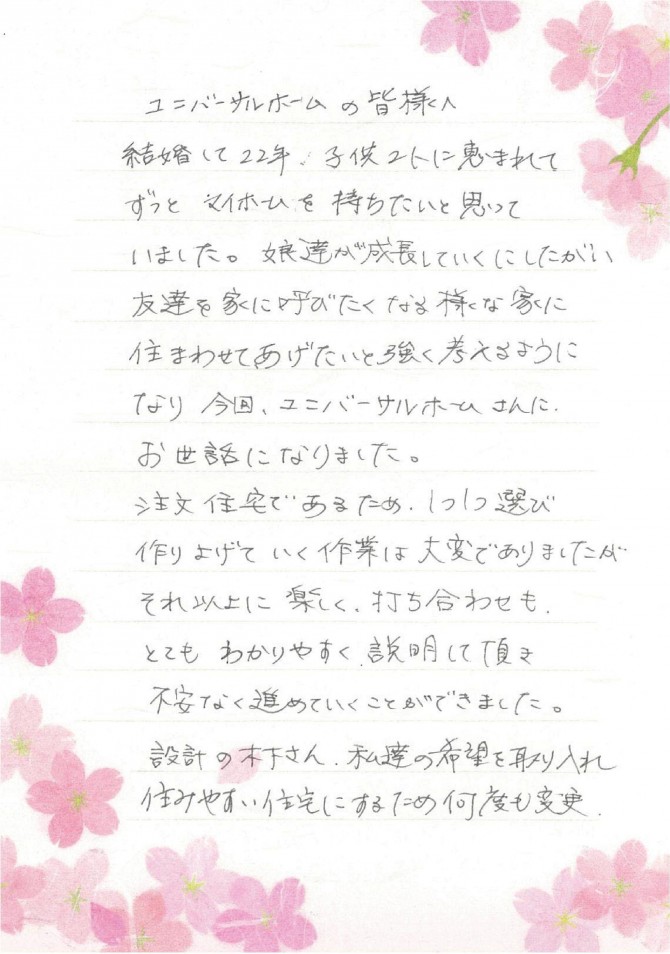 ユニバーサルホームの皆様へ
結婚して22年、子供2人に恵まれて
ずっと マイホームを 持ちたいと思って
いました。娘達が成長していくにしたがい
友達を家に呼びたくなる様な家に
住まわせてあげたいと強く考えるように
なり 今回、ユニバーサルホームさんに
お世話になりました。
注文住宅であるため、1つ1つ選び
作りよげていく作業は大変でありましたが
それ以上に楽しく、打ち合わせも、
とても わかりやすく 説明して頂き
不安なく進めていくことができました。
設計の木下さん、私達の希望を取り入れ
住みやすい住宅にするため何度も変更、